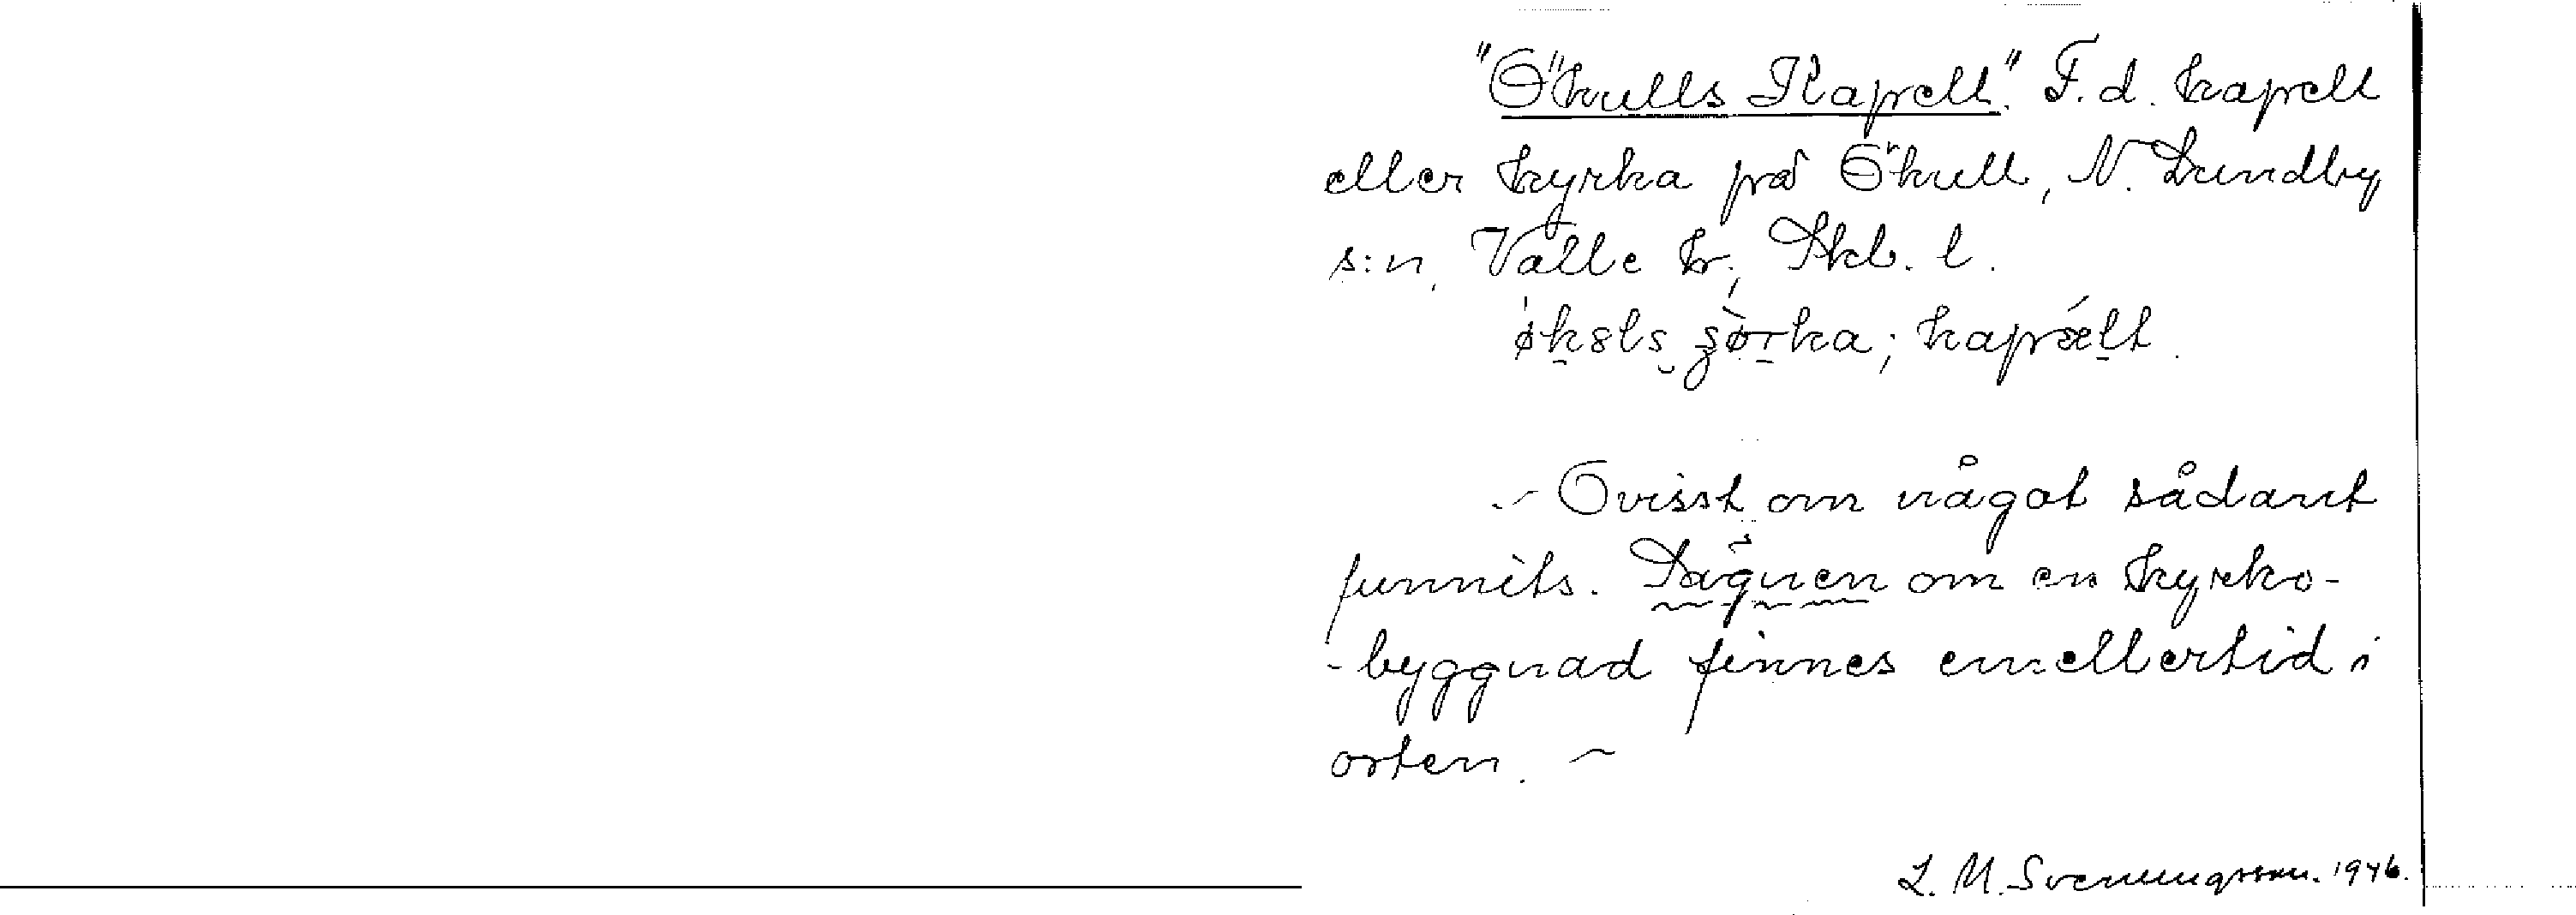 "Ökulls Kapell." F.d. kapell
eller kyrka på Ökull, N. Lundby
s:n, Valle hr., Skb. l.
kapællt.
- Ovisst om något sådant
funnits. Sägnen om en kyrko-
-byggnad finnes emellertid i
orten. ~
L. M. Svenungsson. 1946.